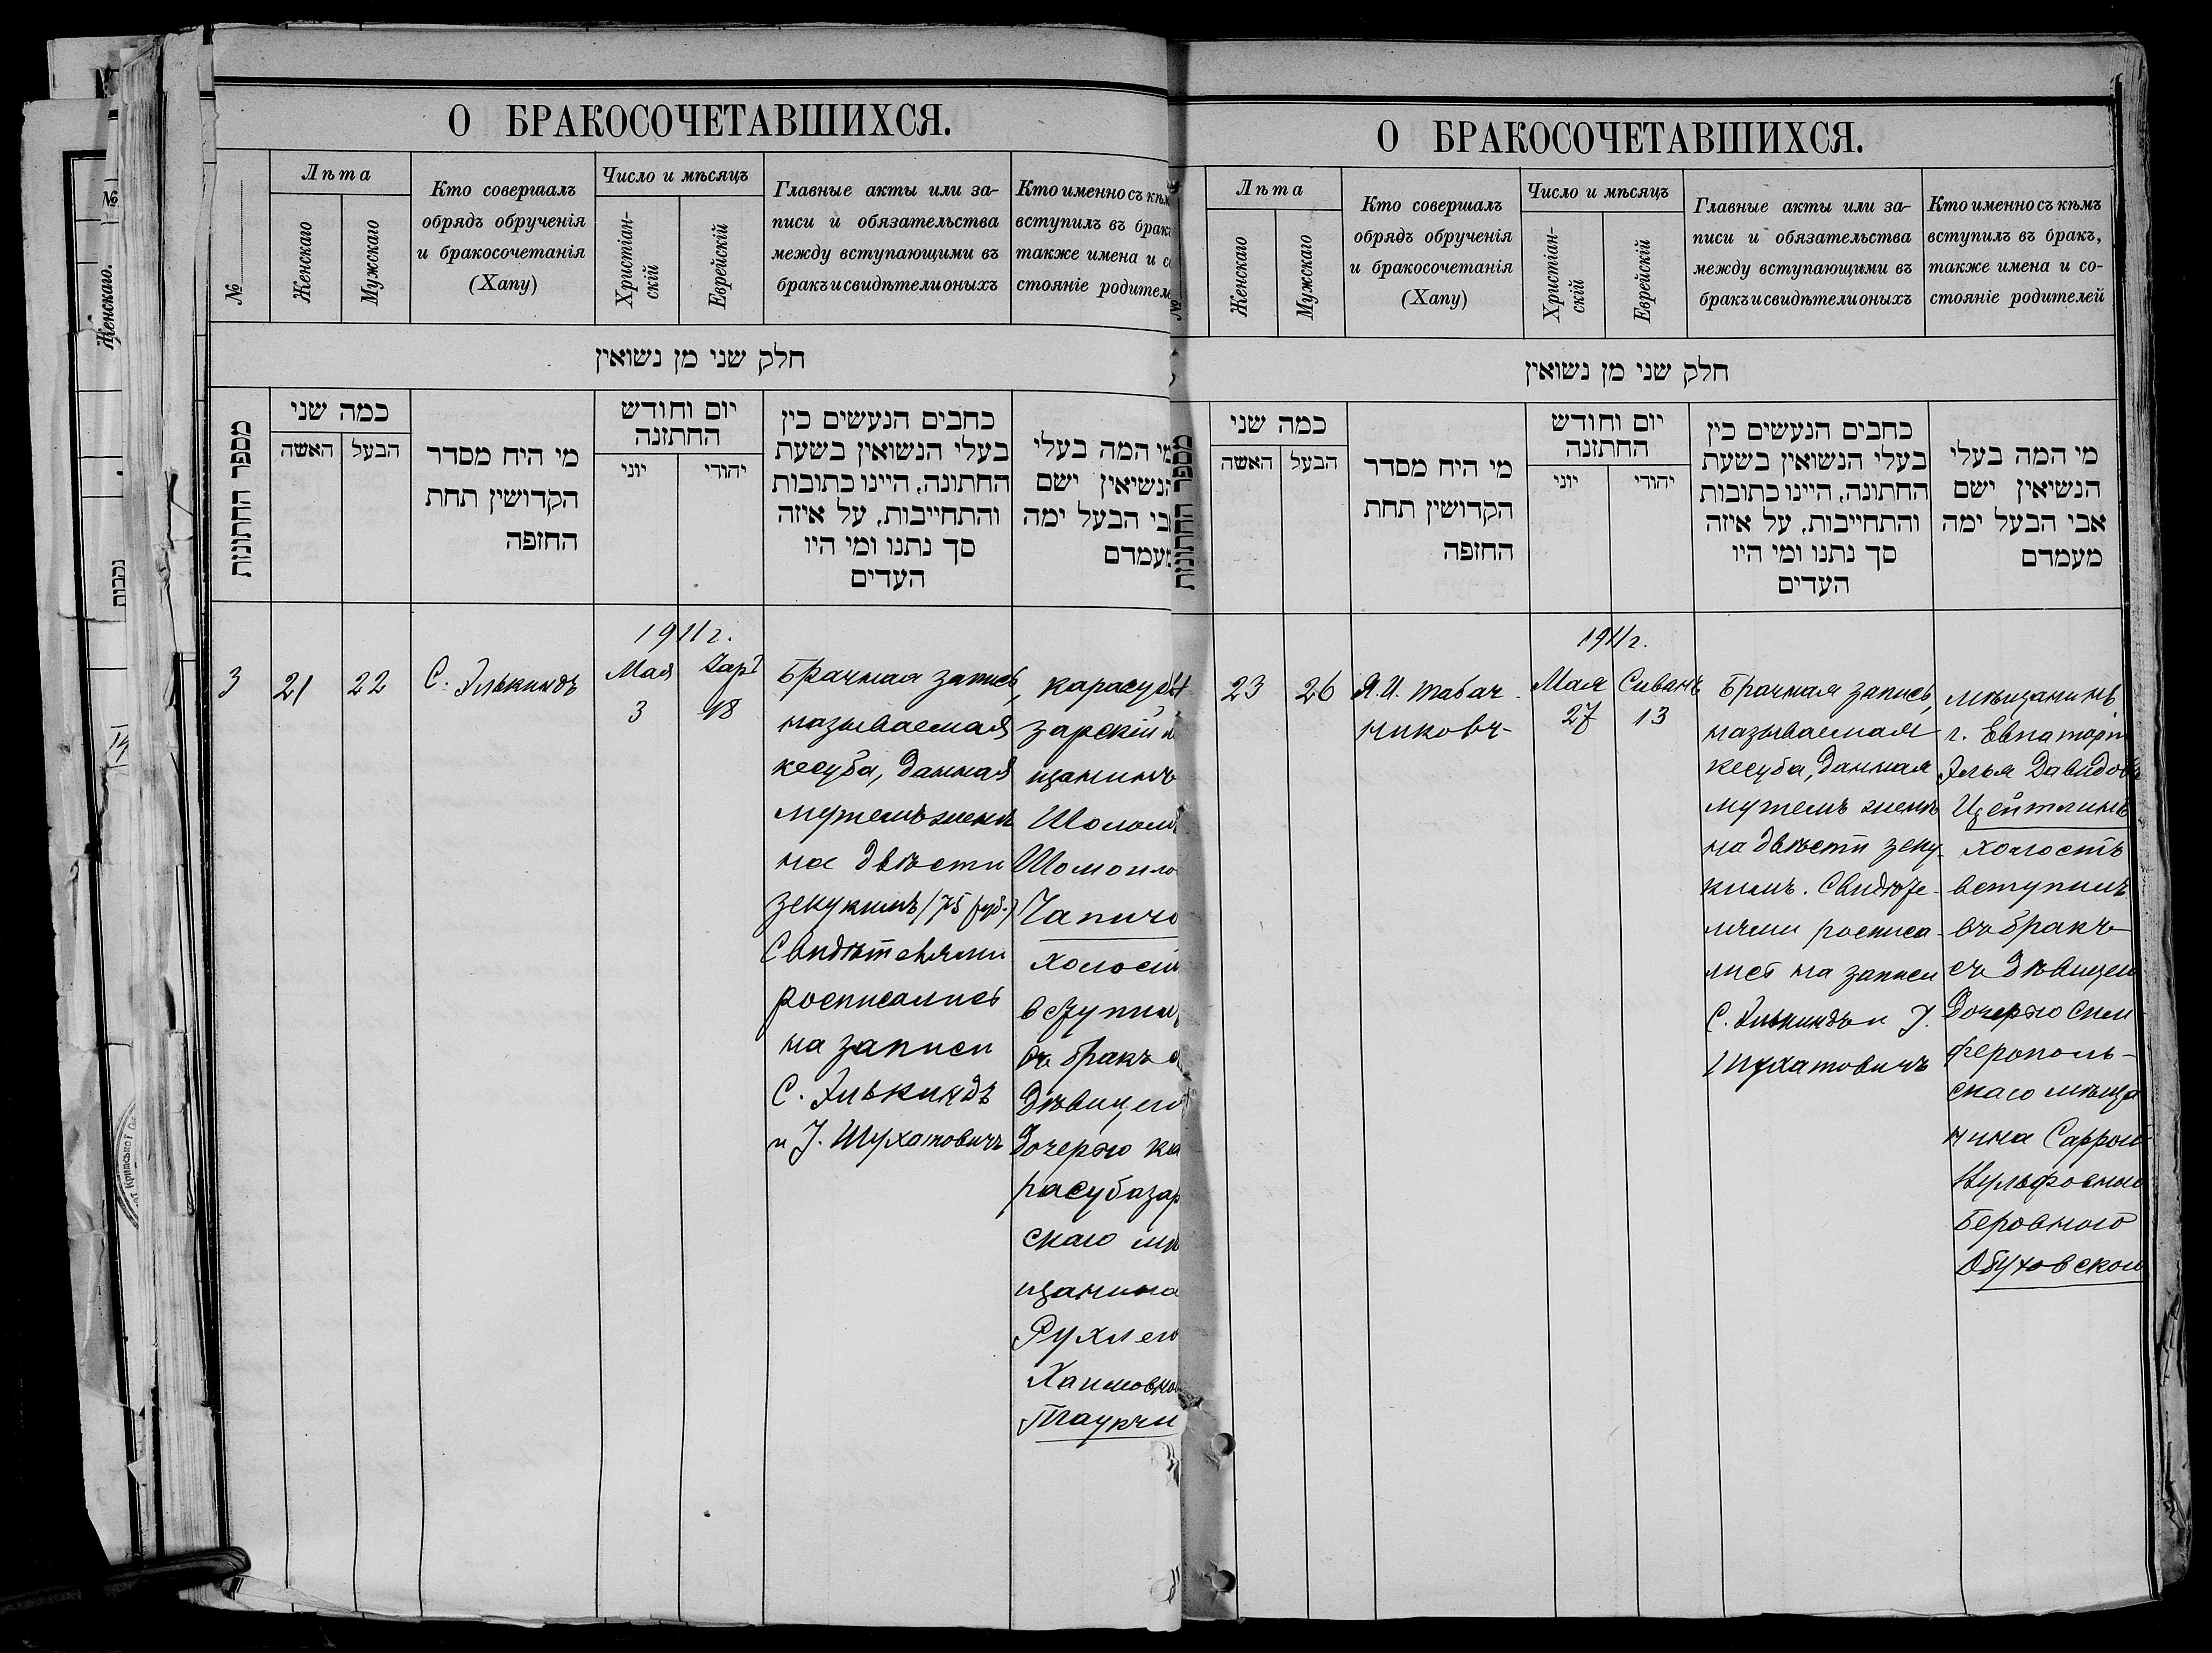 О БРАКОСОЧЕТАВШИХСЯ.
№
Лѣта
Женскаго
Мужскаго
Кто совершалъ
обрядъ обрученія
и бракосочетанія
(Хапу)
Число и мѣсяцъ
Христіан-
скій
Еврейскій
Главные акты или за-
писи и обязательства
между вступающими въ
бракъ и свидѣтели оныхъ
Кто именно съ кѣм
вступилъ въ брак
также имена и с
стояніе родител
חלק שני מן נשואין
מספר החתונות
כמה שני
האשה
הבעל
מי היח מסדר
הקדושין תחת
החזפה
יום וחודש
החתזנה
יוני
יהודי
כחבים הנעשים כין
בעלי הנשואין בשעת
החתונה, היינו כתובות
והתחייבות, על איזה
סך נתנו ומי היו
העדים
מי המה בעלי
הנשיאין ישם
אבי הבעל ימה
מעמדם
1911 г.
3
21
22
С. Элькиндъ
Мая
3
18
Брачная запись,
называемая
кесуба, данная
мужемъ женѣ
на двѣсти
зекукимъ (75 руб.)
Свидѣтелями
росписались
на записи
С. Элькиндъ
и I. Шухатовичъ
карасуб
зарскій м
щанинъ
Шолом
Шомоило
Чапичо
холост
вступил
въ бракъ с
дѣвицею
дочерью ка
расубазар
скаго мѣ
щанина
Рухлею
Хаимовно
Таукчи
О БРАКОСОЧЕТАВШИХСЯ.
№
Лѣта
Женскаго
Мужскаго
Кто совершалъ
обрядъ обрученія
и бракосочетанія
(Хапу)
Число и мѣсяцъ
Христіан-
скій
Еврейскій
Главные акты или за-
писи и обязательства
между вступающими въ
бракъ и свидѣтели оныхъ
Кто именно съ кѣмъ
вступилъ въ бракъ,
также имена и со-
стояніе родителей
חלק שני מן נשואין
מספר החתונות
כמה שני
האשה
הבעל
מי היח מסדר
הקדושין תחת
החזפה
יום וחודש
החתזנה
יוני
יהודי
כחבים הנעשים כין
בעלי הנשואין בשעת
החתונה, היינו כתובות
והתחייבות, על איזה
סך נתנו ומי היו
העדים
מי המה בעלי
הנשיאין ישם
אבי הבעל ימה
מעמדם
1911 г.
4
23
26
Я. И. Табач-
никовъ
Мая
27
Сиванъ
13
Брачная запись,
называемая
кесуба, данная
мужемъ женѣ
на двѣсти зеку-
кимъ. Свидѣте-
лями росписа-
лись на записи
С. Элькиндъ и I.
Шухатовичъ
мѣщанинъ
г. Евпаторіи
Элья Давидовъ
Цейтлинъ
холостъ
вступилъ
въ бракъ
съ дѣвицею
дочерью Сим
ферополь-
скаго мѣща
нина Саррою
Беровною
Обуховскою